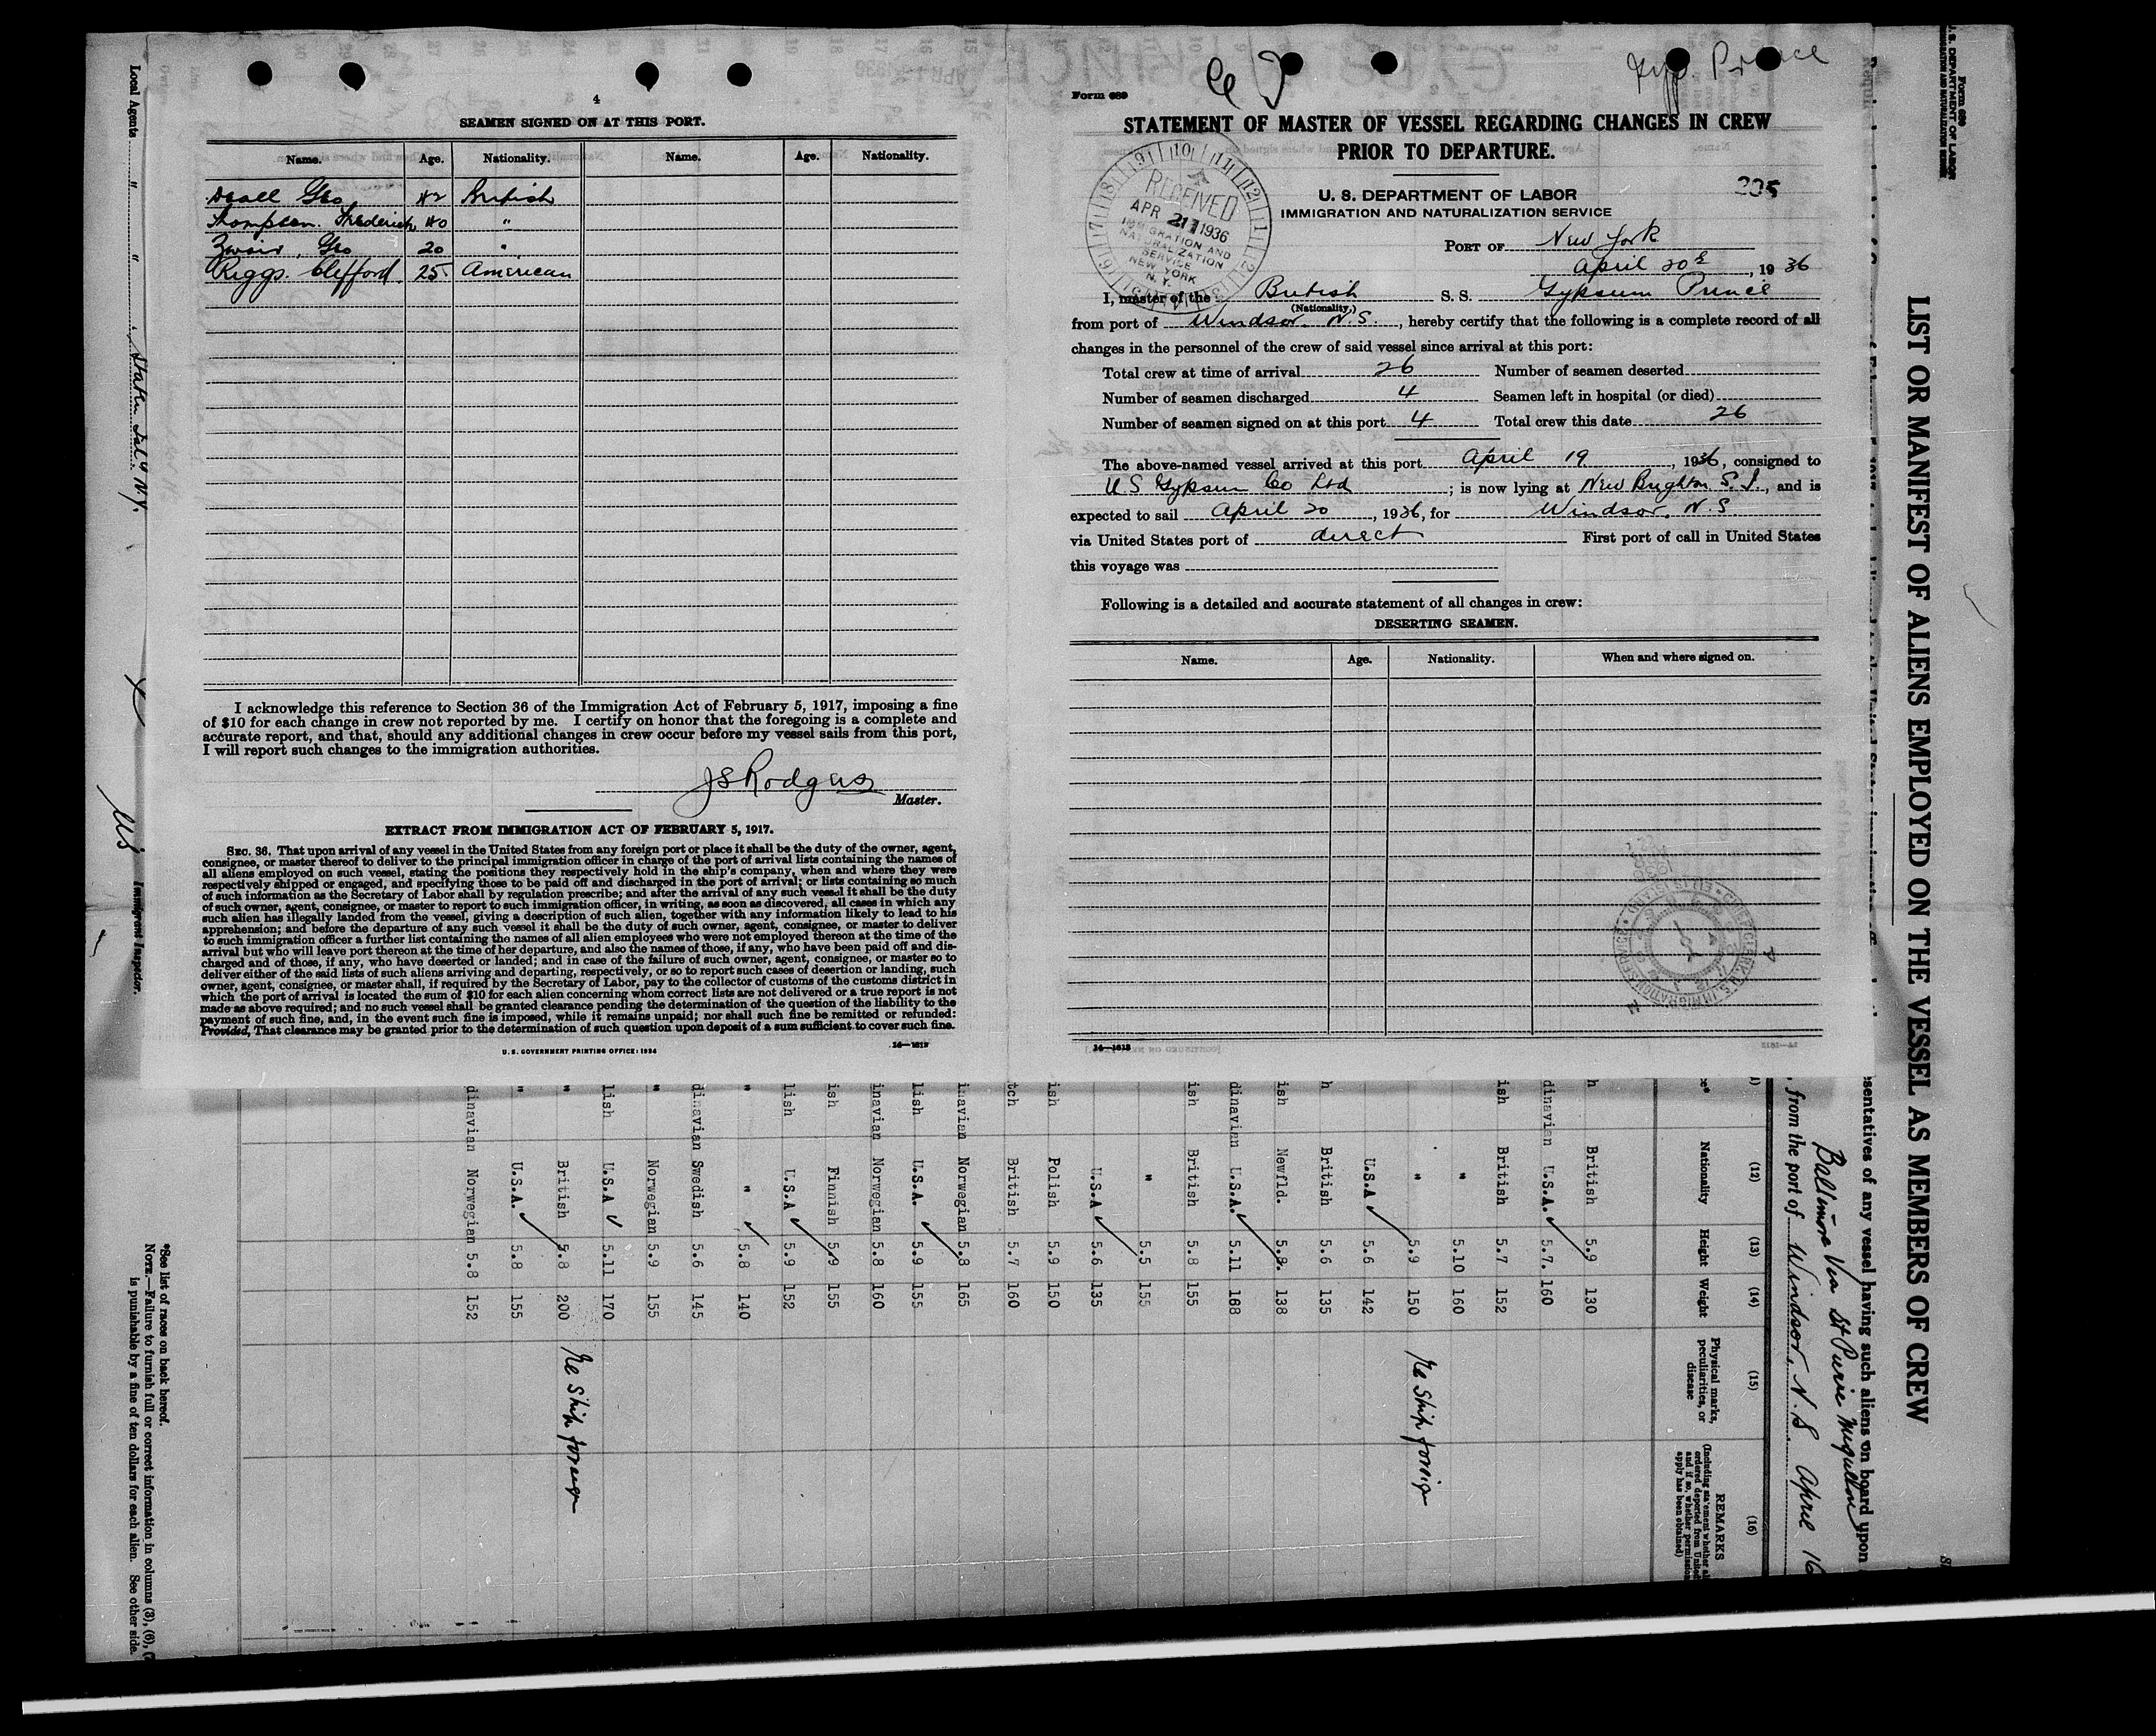 4
SEAMEN SIGNED ON AT THIS PORT.
Name. Age. Nationality. Name. Age. Nationality.
Geo 42 British
Thompson. Frederick 40 "
Geo 20 "
Riggs. Clifford. 25 American
I acknowledge this reference to Section 36 of the Immigration Act of February 5, 1917, imposing a fine
of $10 for each change in crew not reported by me. I certify on honor that the foregoing is a complete and
accurate report, and that, should any additional changes in crew occur before my vessel sails from this port,
I will report such changes to the immigration authorities.
JSRodgers
Master.
EXTRACT FROM IMMIGRATION ACT OF FEBRUARY 5, 1917.
SEC. 36. That upon arrival of any vessel in the United States from any foreign port or place it shall be the duty of the owner, agent,
consignee, or master thereof to deliver to the principal immigration officer in charge of the port of arrival lists containing the names of
all aliens employed on such vessel, stating the positions they respectively hold in the ship's company, when and where they were
respectively shipped or engaged, and specifying those to be paid off and discharged in the port of arrival; or lists containing so much
of such information as the Secretary of Labor shall by regulation prescribe; and after the arrival of any such vessel it shall be the duty
of such owner, agent, consignee, or master to report to such immigration officer, in writing, as soon as discovered, all cases in which any
such alien has illegally landed from the vessel, giving a description of such alien, together with any information likely to lead to his
apprehension; and before the departure of any such vessel it shall be the duty of such owner, agent, consignee, or master to deliver
to such immigration officer a further list containing the names of all alien employees who were not employed thereon at the time of the
arrival but who will leave port thereon at the time of her departure, and also the names of those, if any, who have been paid off and dis-
charged and of those, if any, who have deserted or landed; and in case of the failure of such owner, agent, consignee, or master so to
deliver either of the said lists of such aliens arriving and departing, respectively, or so to report such cases of desertion or landing, such
owner, agent, consignee, or master shall, if required by the Secretary of Labor, pay to the collector of customs of the customs district in
which the port of arrival is located the sum of $10 for each alien concerning whom correct lists are not delivered or a true report is not
made as above required; and no such vessel shall be granted clearance pending the determination of the question of the liability to the
payment of such fine, and, in the event such fine is imposed, while it remains unpaid; nor shall such fine be remitted or refunded:
Provided, That clearance may be granted prior to the determination of such question upon deposit of a sum sufficient to cover such fine.
U. S. GOVERNMENT PRINTING OFFICE: 1934
14—1613
Gyp Prince
Form 689
STATEMENT OF MASTER OF VESSEL REGARDING CHANGES IN CREW
PRIOR TO DEPARTURE.
205
U. S. DEPARTMENT OF LABOR
IMMIGRATION AND NATURALIZATION SERVICE
RECEIVED
APR 21 1936
IMMIGRATION AND
NATURALIZATION
SERVICE
NEW YORK
N. Y.
PORT OF New York
April 20, 1936
I, master of the British S. S. Gypsum Prince
(Nationality.)
from port of Windsor. N.S., hereby certify that the following is a complete record of all
changes in the personnel of the crew of said vessel since arrival at this port:
Total crew at time of arrival 26 Number of seamen deserted
Number of seamen discharged 4 Seamen left in hospital (or died)
Number of seamen signed on at this port 4 Total crew this date 26
The above-named vessel arrived at this port April 19, 1936, consigned to
U S Gypsum Co Ltd; is now lying at New Brighton S. I., and is
expected to sail April 20, 1936, for Windsor. N. S
via United States port of direct First port of call in United States
this voyage was
Following is a detailed and accurate statement of all changes in crew:
DESERTING SEAMEN.
Name. Age. Nationality. When and where signed on.
14—1613
Form 689
U. S. DEPARTMENT OF LABOR
IMMIGRATION AND NATURALIZATION SERVICE
LIST OR MANIFEST OF ALIENS EMPLOYED ON THE VESSEL AS MEMBERS OF CREW
sentatives of any vessel having such aliens on board upon
Baltimore Via St Pierre Miquelon
, from the port of Windsor, N. S April 16
(12) (13) (14) (15) (16)
Nationality Height Weight Physical marks, peculiarities, or disease REMARKS
h British 5.9 130
dinavian U.S.A. 5.7. 160
ish British 5.7 152
" 5.10 160
" 5.9 150 Re Ship foreign
U.S.A 5.6 142
h British 5.6 135
ish Newfld. 5.9. 138
dinavian U.S.A. 5.11 168
ish British 5.8 155
" 5.5 155
U.S.A 5.6 135
ish Polish 5.9 150
tch British 5.7 160
inavian Norwegian 5.8 165
lish U.S.A. 5.9 155
inavian Norwegian 5.8 160
ish Finnish 5.9 155
lish U.S.A 5.9 152
" " 5.8 140
dinavian Swedish 5.6 145
" Norwegian 5.9 155
lish U.S.A 5.11 170
" British 5.8 200 Re Ship foreign
" U.S.A. 5.8 155
dinavian Norwegian 5.8 152
*See list of races on back hereof.
NOTE.—Failure to furnish full or correct information in columns (3), (6), (
is punishable by a fine of ten dollars for each alien. See other side.
Local Agents
" Staten Isld. N.Y.
Immigrant Inspector.